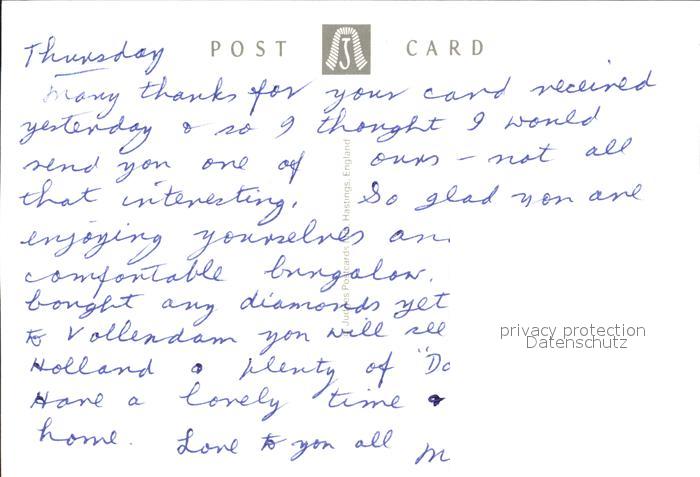 POST CARD
Thursday
Many thanks for your card received
yesterday & so I thought I would
send you one of ours - not all
that interesting. So glad you are
enjoying yourselves an
comfortable bungalow.
bought any diamonds yet
to Vollendam you will see
Holland & plenty of "Do
Have a lovely time &
home. Love to you all
M
Judges Postcards Hastings, England
privacy protection
Datenschutz